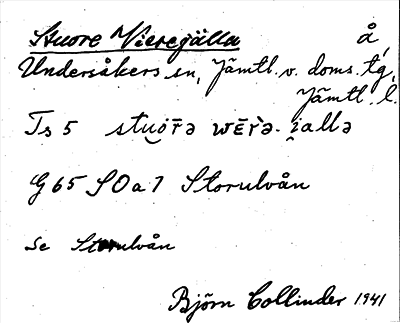 Stuore Vierejälla å,
Undersåkers sn, Jämtl. v. doms. tg,
Jämtl. l.
Ts 5 stu̯ōr̄ə wēr̄ə-i̯allə
G 65 SO a 7 Storulvån
Se Storulvån
Björn Collinder 1941